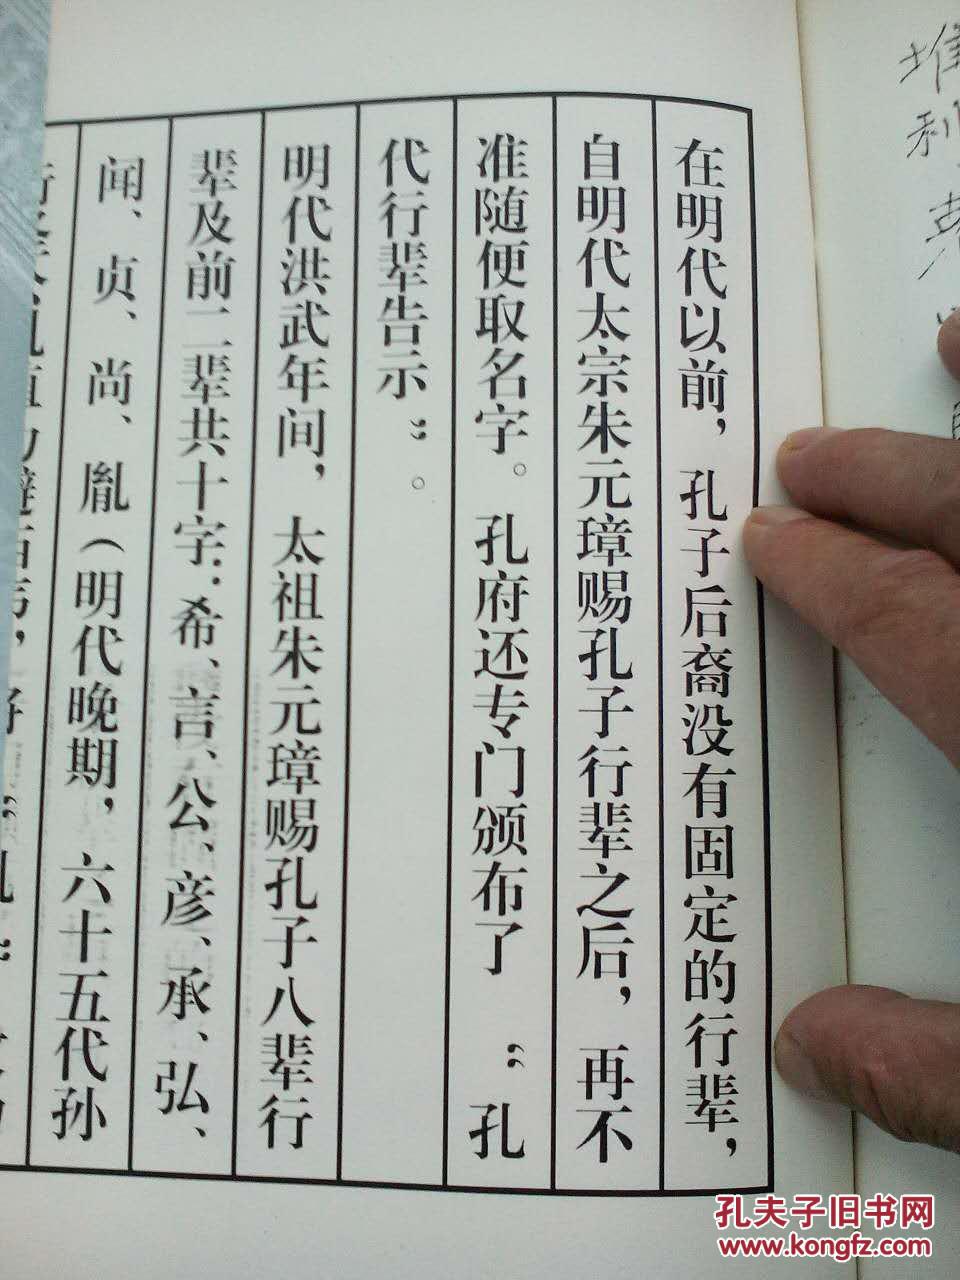 在明代以前，孔子后裔没有固定的行辈，
自明代太宗朱元璋赐孔子行辈之后，再不
准随便取名字。孔府还专门颁布了“孔
代行辈告示”。
明代洪武年间，太祖朱元璋赐孔子八辈行
辈及前二辈共十字：希、言、公、彦、承、弘、
闻、贞、尚、胤（明代晚期，六十五代孙
孔夫子旧书网
www.kongfz.com